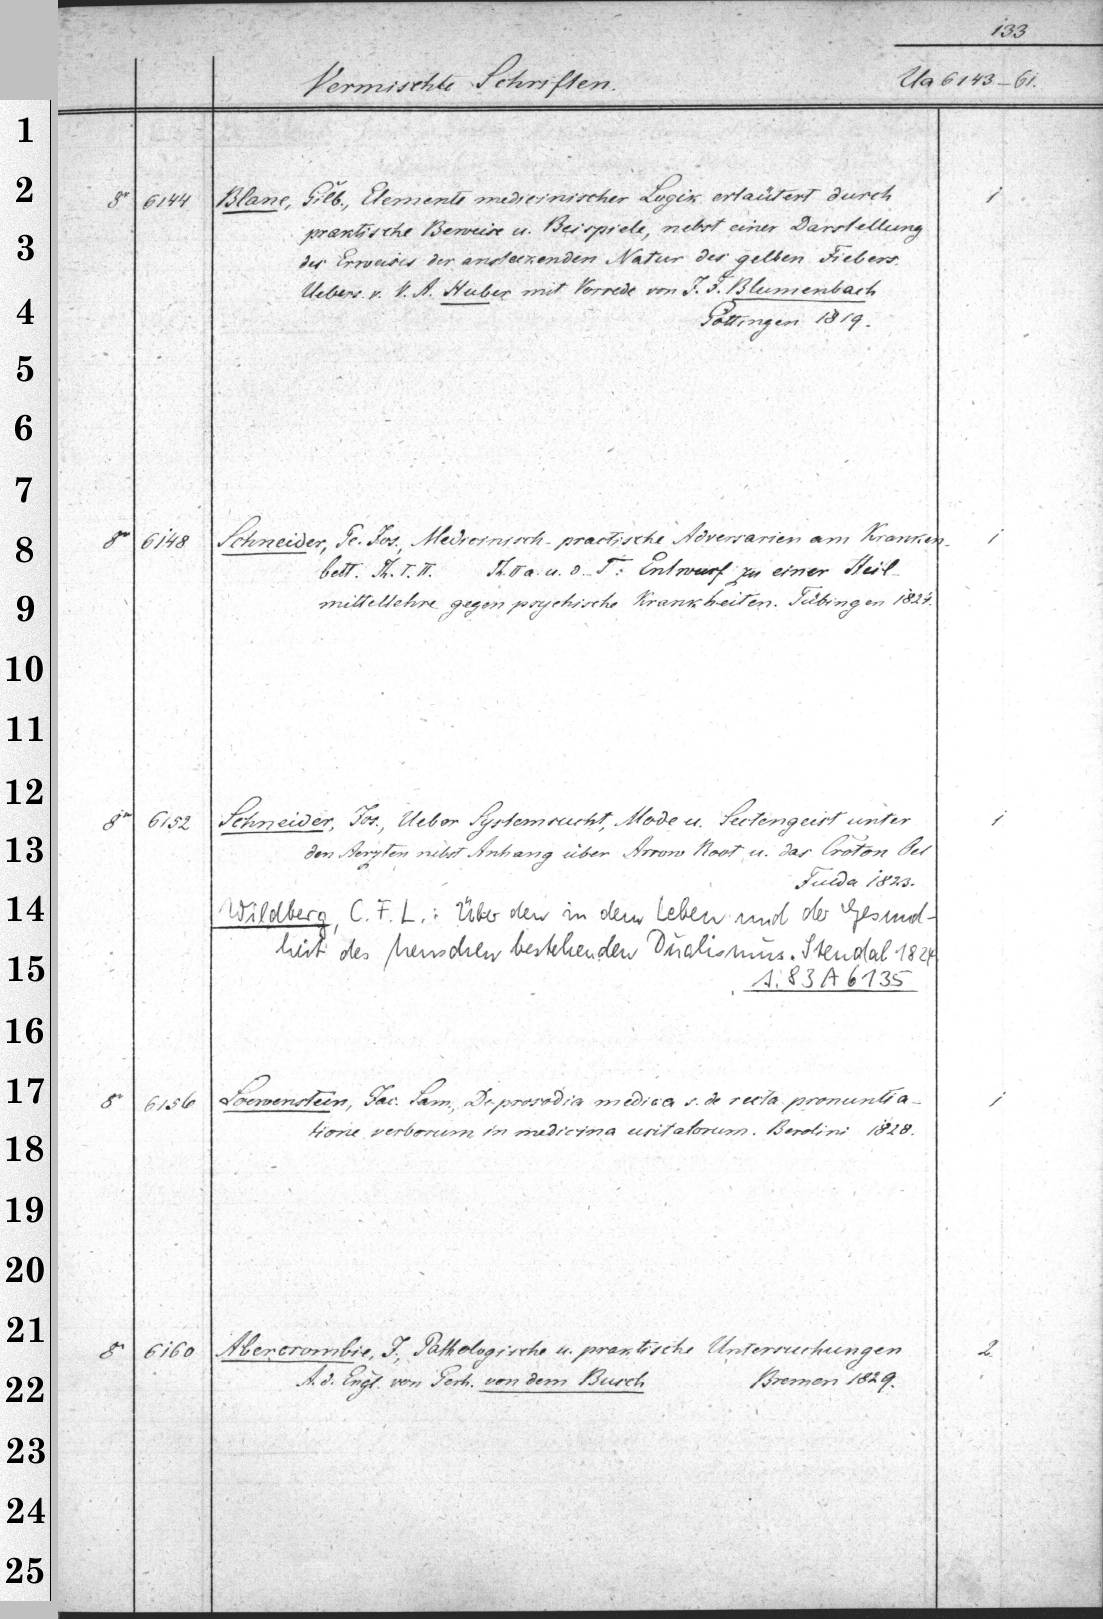 133
Vermischte Schriften. Ua 6143-61.
1
2
3
4
5
6
7
8
9
10
11
12
13
14
15
16
17
18
19
20
21
22
23
24
25
8° 6144 Blane, Gilb., Elemente medicinischer Logik erläutert durch 1
praktische Beweise u. Beispiele, nebst einer Darstellung
des Erweises der ansteckenden Natur des gelben Fiebers.
Uebers. v. V. A. Huber mit Vorrede von J. F. Blumenbach
Göttingen 1819.
8° 6148 Schneider, Pc. Jos., Medicinisch-practische Adversarien am Kranken- 1
bett. Th. I. II. Th. II a. u. d. T: Entwurf zu einer Heil-
mittellehre gegen psychische Krankheiten. Tübingen 1824.
8° 6152 Schneider, Jos., Ueber Systemsucht, Mode u. Sectengeist unter 1
den Aerzten nebst Anhang über Arrow Root u. das Croton Oel
Fulda 1823.
Wildberg, C. F. L.: Über den in dem Leben und der Gesund-
heit des Menschen bestehenden Dualismus. Stendal 1824
s. 83 A 6135
8° 6156 Loewenstein, Jac. Sam., De prosodia medica s. de recta pronuntia- 1
tione verborum in medicina usitatorum. Berolini 1828.
8° 6160 Abercrombie, J., Pathologische u. praktische Untersuchungen 2
A. d. Engl. von Gerh. von dem Busch Bremen 1829.